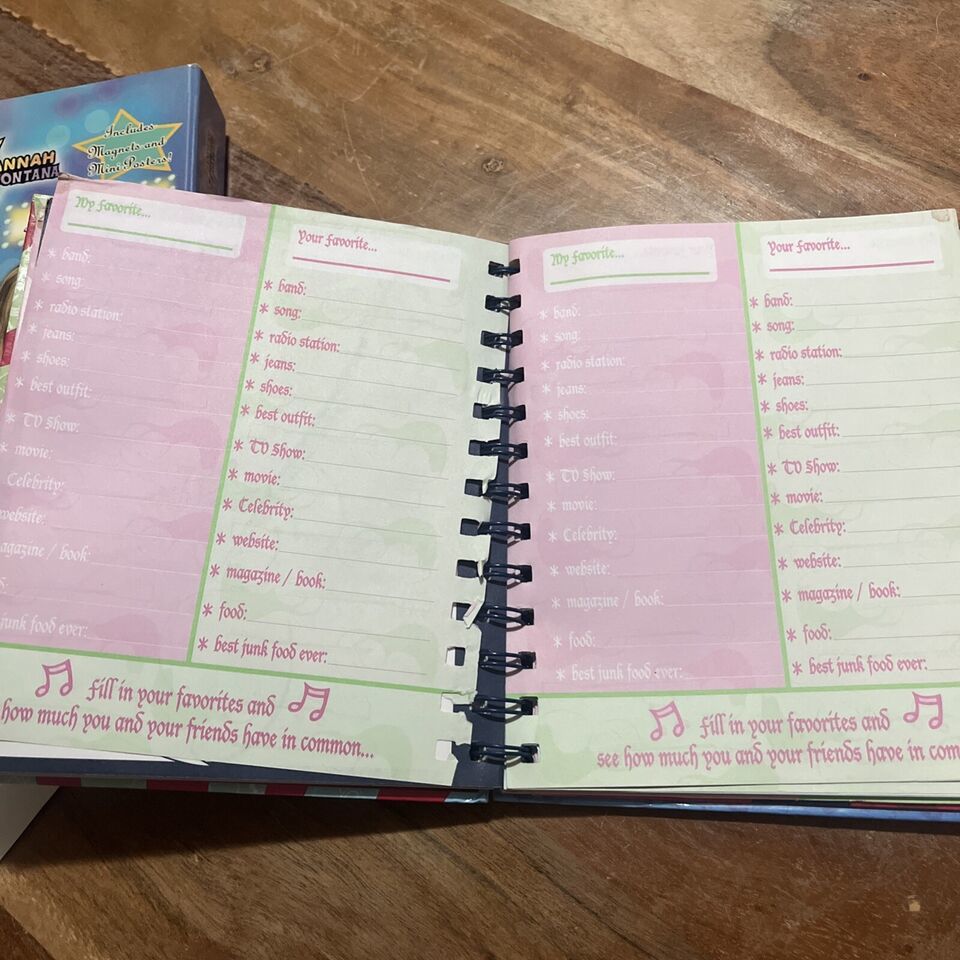 ANNAH
ONTANA
Includes
Magnets and
Mini Posters!
My favorite...
* band:
* song:
* radio station:
* jeans:
* shoes:
* best outfit:
* TV Show:
* movie:
Celebrity:
website:
agazine / book:
junk food ever:
Your favorite...
* band:
* song:
* radio station:
* jeans:
* shoes:
* best outfit:
* TV Show:
* movie:
* Celebrity:
* website:
* magazine / book:
* food:
* best junk food ever:
Fill in your favorites and
how much you and your friends have in common...
My favorite...
* band:
* song:
* radio station:
* jeans:
* shoes:
* best outfit:
* TV Show:
* movie:
* Celebrity:
* website:
* magazine / book:
* food:
* best junk food ever:
Your favorite...
* band:
* song:
* radio station:
* jeans:
* shoes:
* best outfit:
* TV Show:
* movie:
* Celebrity:
* website:
* magazine / book:
* food:
* best junk food ever:
Fill in your favorites and
see how much you and your friends have in com